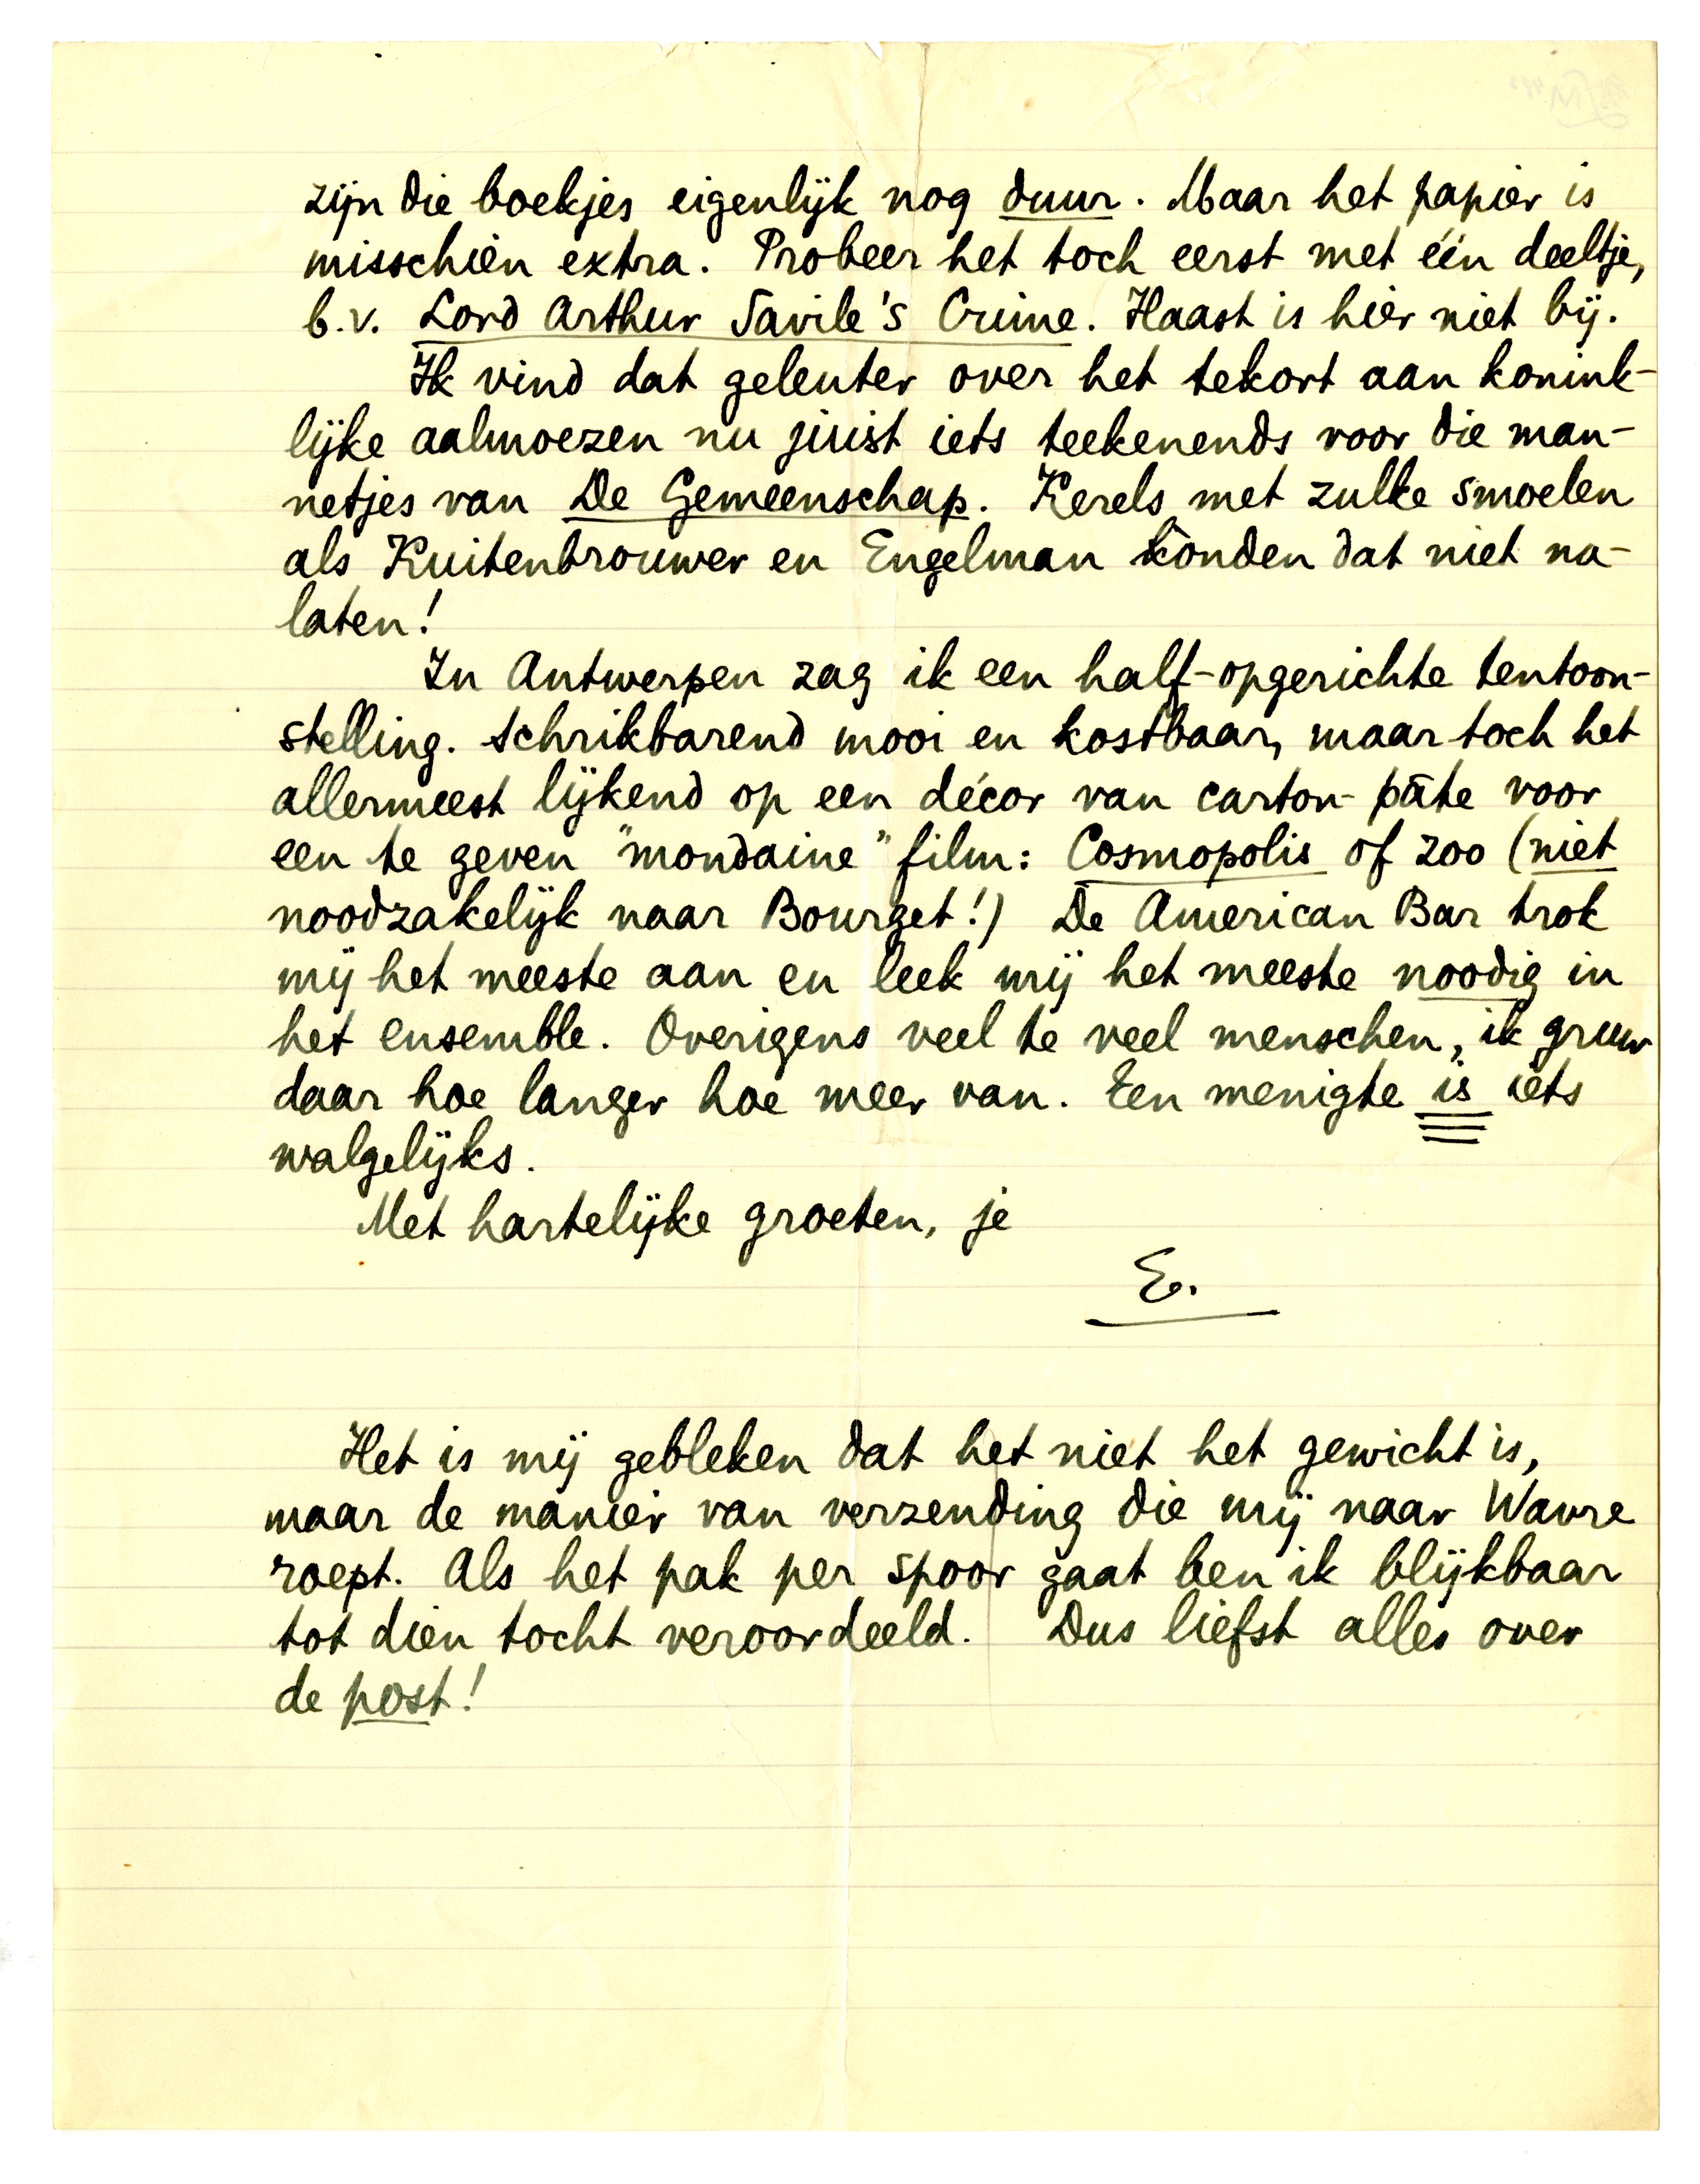 zijn die boekjes eigenlijk nog duur. Maar het papier is
misschien extra. Probeer het toch eerst met één deeltje,
b.v. Lord Arthur Savile's Crime. Haast is hier niet bij.
Ik vind dat geleuter over het tekort aan konink-
lijke aalmoezen nu juist iets teekenends voor die man-
netjes van De Gemeenschap. Kerels met zulke smoelen
als Kuitenbrouwer en Engelman kònden dat niet na-
laten!
In Antwerpen zag ik een half-opgerichte tentoon-
stelling. Schrikbarend mooi en kostbaar, maar toch het
allermeest lijkend op een décor van carton-pâte voor
een te geven "mondaine" film: Cosmopolis of zoo (niet
noodzakelijk naar Bourget!) De American Bar trok
mij het meeste aan en leek mij het meeste noodig in
het ensemble. Overigens veel te veel menschen, ik gruw
daar hoe langer hoe meer van. Een menigte is iets
walgelijks.
Met hartelijke groeten, je
E.
Het is mij gebleken dat het niet het gewicht is,
maar de manier van verzending die mij naar Wavre
roept. Als het pak per spoor gaat ben ik blijkbaar
tot dien tocht veroordeeld. Dus liefst alles over
de post!